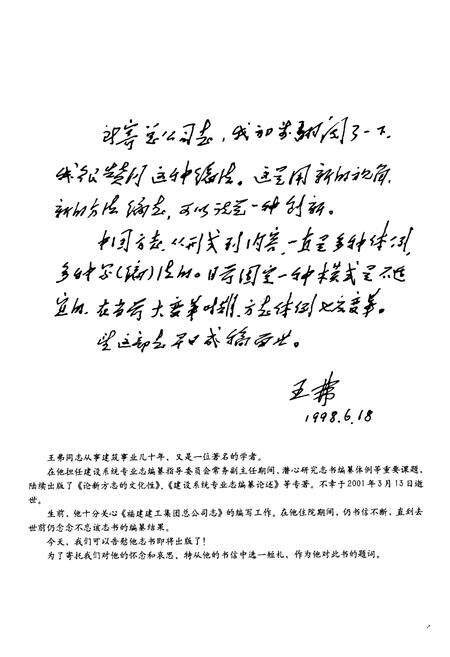 所寄总公司志，我和考骅阅了一下
我很赞同这种编法。这是用新的视角、
新的方法编志，可以说是一种创新。
中国方志，从形式到内容，一直是多种体例，
多种写(编)法的。目前固定一种模式是不适
宜的，在当前大变革时期，方志体例也应变革。
望这部志早日成稿面世。
王弗
1998.6.18
王弗同志从事建筑事业几十年、又是一位著名的学者。
在他担任建设系统专业志编纂指导委员会常务副主任期间、潜心研究志书编纂体例等重要课题，
陆续出版了《论新方志的文化性》、《建设系统专业志编纂论述》等专著。不幸于2001年3月13日逝
世。
生前，他十分关心《福建建工集团总公司志》的编写工作。在他住院期间，仍书信不断，直到去
世前仍念念不忘该志书的编纂结果。
今天、我们可以告慰他志书即将出版了！
为了寄托我们对他的怀念和哀思，特从他的书信中选一短札、作为他对此书的题词。